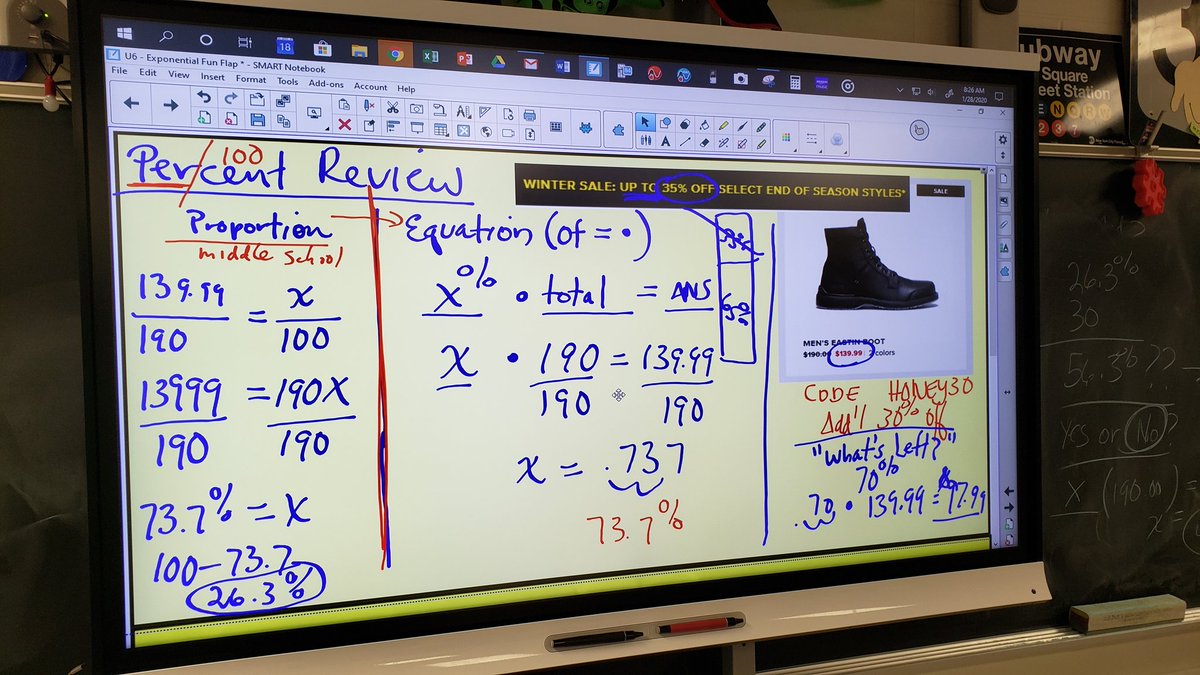 U6 - Exponential Fun Flap * - SMART Notebook
18
8:26 AM
1/28/2020
File Edit View Insert Format Tools Add-ons Account Help
Per/cent Review
100
WINTER SALE: UP TO 35% OFF SELECT END OF SEASON STYLES*
SALE
Proportion
middle school
139.99 = x
190 100
13999 = 190X
190 190
73.7% = X
100-73.7
26.3%
Equation (of = •)
x% • total = ANS
x • 190 = 139.99
190 190
x = .737
73.7%
35%
65%
MEN'S EASTIN BOOT
$190.00 $139.99 2 colors
CODE HONEY30
Add'l 30% off
"what's Left?"
70%
.70 • 139.99 = $97.99
ubway
Square
eet Station
N Q R W
2 3 7
26.3%
30
56.3%??
Yes or No?
X (190.00) =
x =